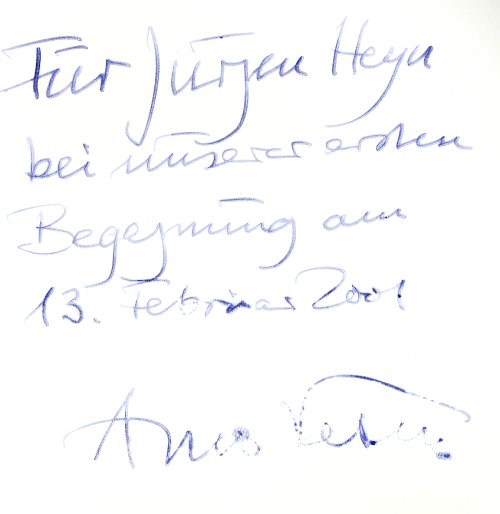 Für Jürgen Heyn
bei unserer ersten
Begegnung am
13. Februar 2001